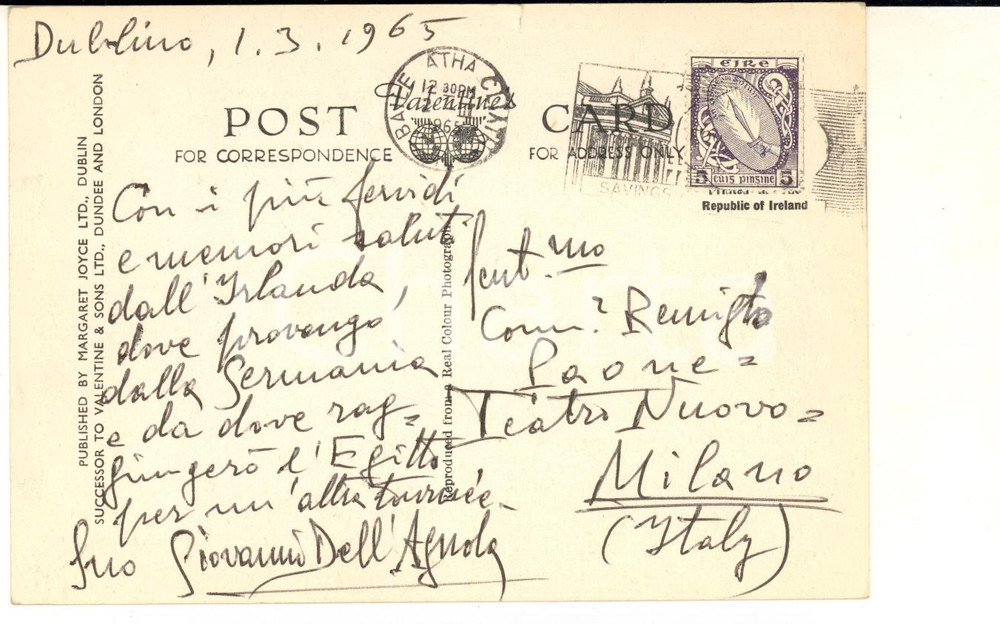 Dublino, 1.3.1965
BAILE ATHA CLIATH
12 30PM
1965
Valentine's
POST CARD
FOR CORRESPONDENCE
FOR ADDRESS ONLY
SAVINGS
éire
5 cúig pingine 5
Printed in the
Republic of Ireland
PUBLISHED BY MARGARET JOYCE LTD., DUBLIN
SUCCESSOR TO VALENTINE & SONS LTD., DUNDEE AND LONDON
Reproduced from a Real Colour Photograph
Con i più fervidi
e memori saluti
dall'Irlanda,
dove provengo
dalla Germania
e da dove rag=
giungerò l'Egitto
per un'altra tournée.
Suo Giovanni Dell'Agnola
Gent.mo
Comm. Remigio
Paone=
Teatro Nuovo=
Milano
(Italy)